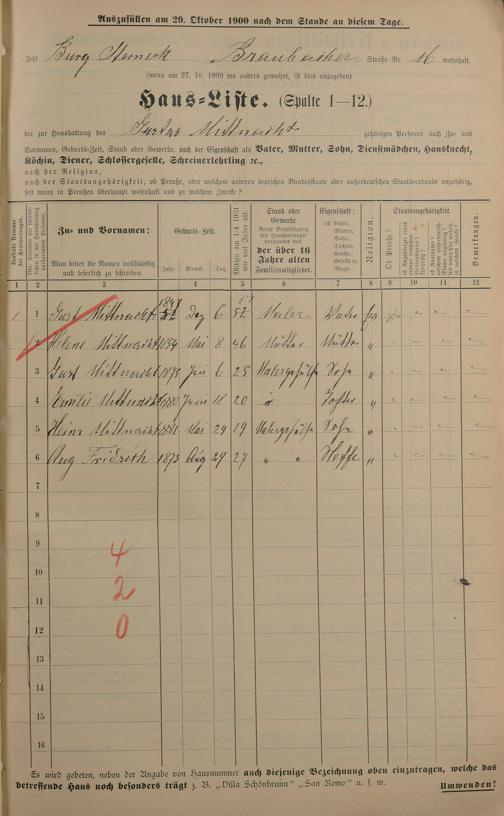 Auszufüllen am 29. Oktober 1900 nach dem Stande an diesem Tage.
Jetzt Burg Sterneck Braubacher Straße Nr. 16 wohnhaft.
(wenn am 27. 10. 1899 wo anders gewohnt, ist dies anzugeben)
Haus-Liste. (Spalte 1—12.)
der zur Haushaltung des Gustav Mittnacht gehörigen Personen nach Zu- und
Vornamen, Geburts-Zeit, Stand oder Gewerbe, nach der Eigenschaft als Vater, Mutter, Sohn, Dienstmädchen, Hausknecht,
Köchin, Diener, Schlossergeselle, Schreinerlehrling ec.,
nach der Religion,
nach der Staatsangehörigkeit, ob Preuße, oder welchem anderen deutschen Bundesstaate oder außerdeutschen Staatsverbande angehörig,
seit wann in Preußen überhaupt wohnhaft und zu welchem Zwecke?
Zu- und Vornamen:
Man bittet die Namen vollständig und leserlich zu schreiben.
Geburts-Zeit.
Jahr. Monat. Tag.
Mithin am 1/4 1901 wie viel Jahre alt.
Stand oder Gewerbe
Beruf Beschäftigung des Haushaltungsvorstandes und
der über 16 Jahre alten
Familienmitglieder.
Eigenschaft:
ob Vater, Mutter, Sohn, Tochter, Geselle u. Magd.
Religion.
Staatsangehörigkeit.
Ob Preuße?
Bemerkungen.
1 2 3 4 5 6 7 8 9 10 11 12
1 Gust Mittnacht 1847 Dez 6 Maler Vater
2 Helene Mittnacht 1854 Mai 8 46 Mutter Mutter "
3 Gust Mittnacht 1875 Juni 6 25 Malergehülfe Sohn "
4 Emilie Mittnacht 1880 Juni 18 20 Tochter "
5 Heinr Mittnacht 1881 Mai 24 19 Malergehülfe Sohn "
6 Aug Fridrich 1873 Aug 29 27 " " Neffe "
7
8
9
4
10
2
11
12
0
13
14
15
16
Es wird gebeten, neben der Angabe von Hausnummer auch diejenige Bezeichnung oben einzutragen, welche das
betreffende Haus noch besonders trägt z. B. „Villa Schönbrunn" „San Remo" u. s. w. Umwenden!